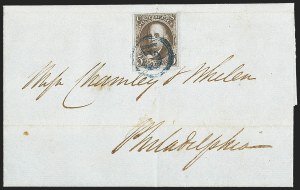 Mess Charnley & Whelen
Philadelphia